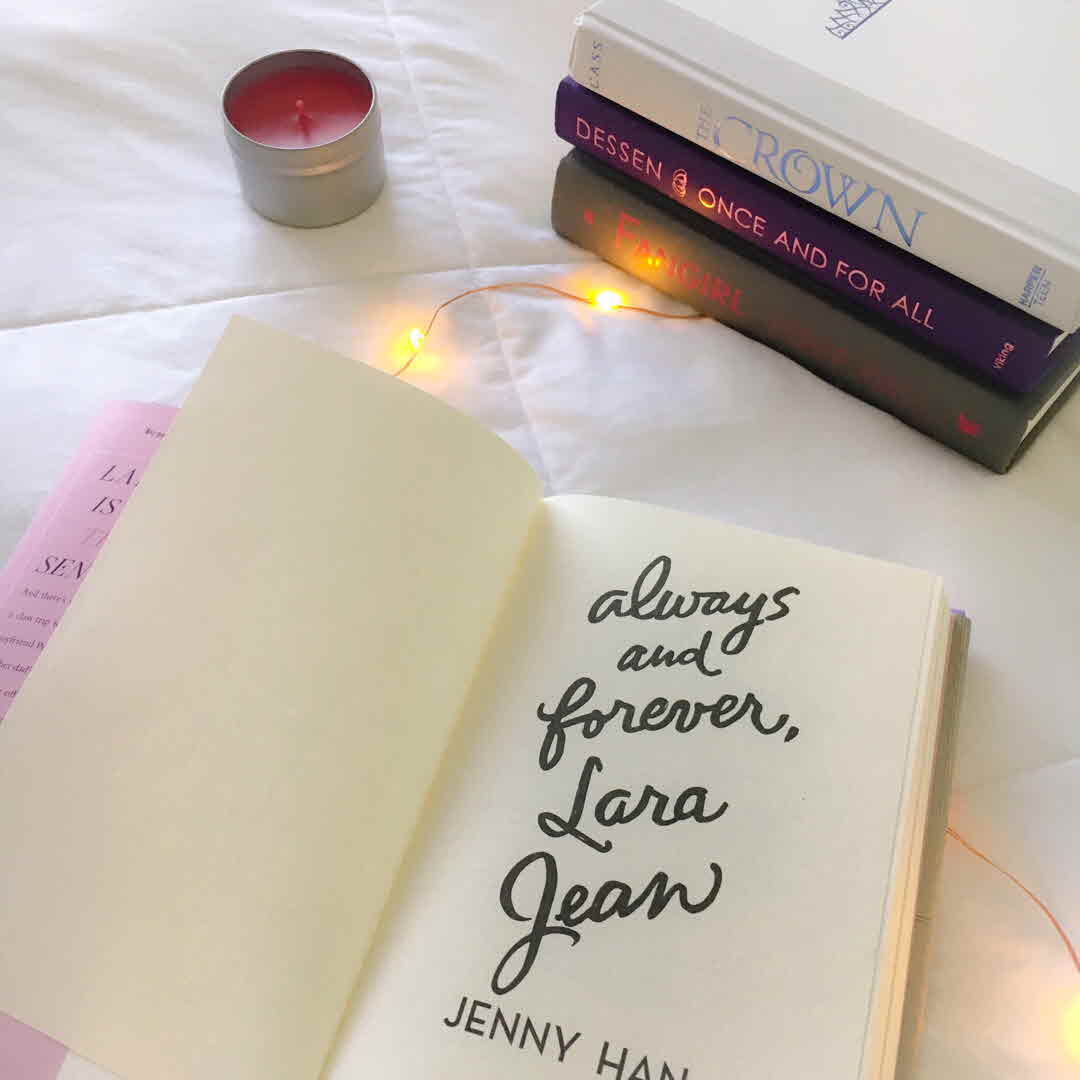 CASS
THE CROWN
HARPER
TEEN
DESSEN ONCE AND FOR ALL
Viking
FANGIRL
IS
SEN
And there's
a class trip
boyfriend
her dad
always
and
forever,
Lara
Jean
JENNY HAN